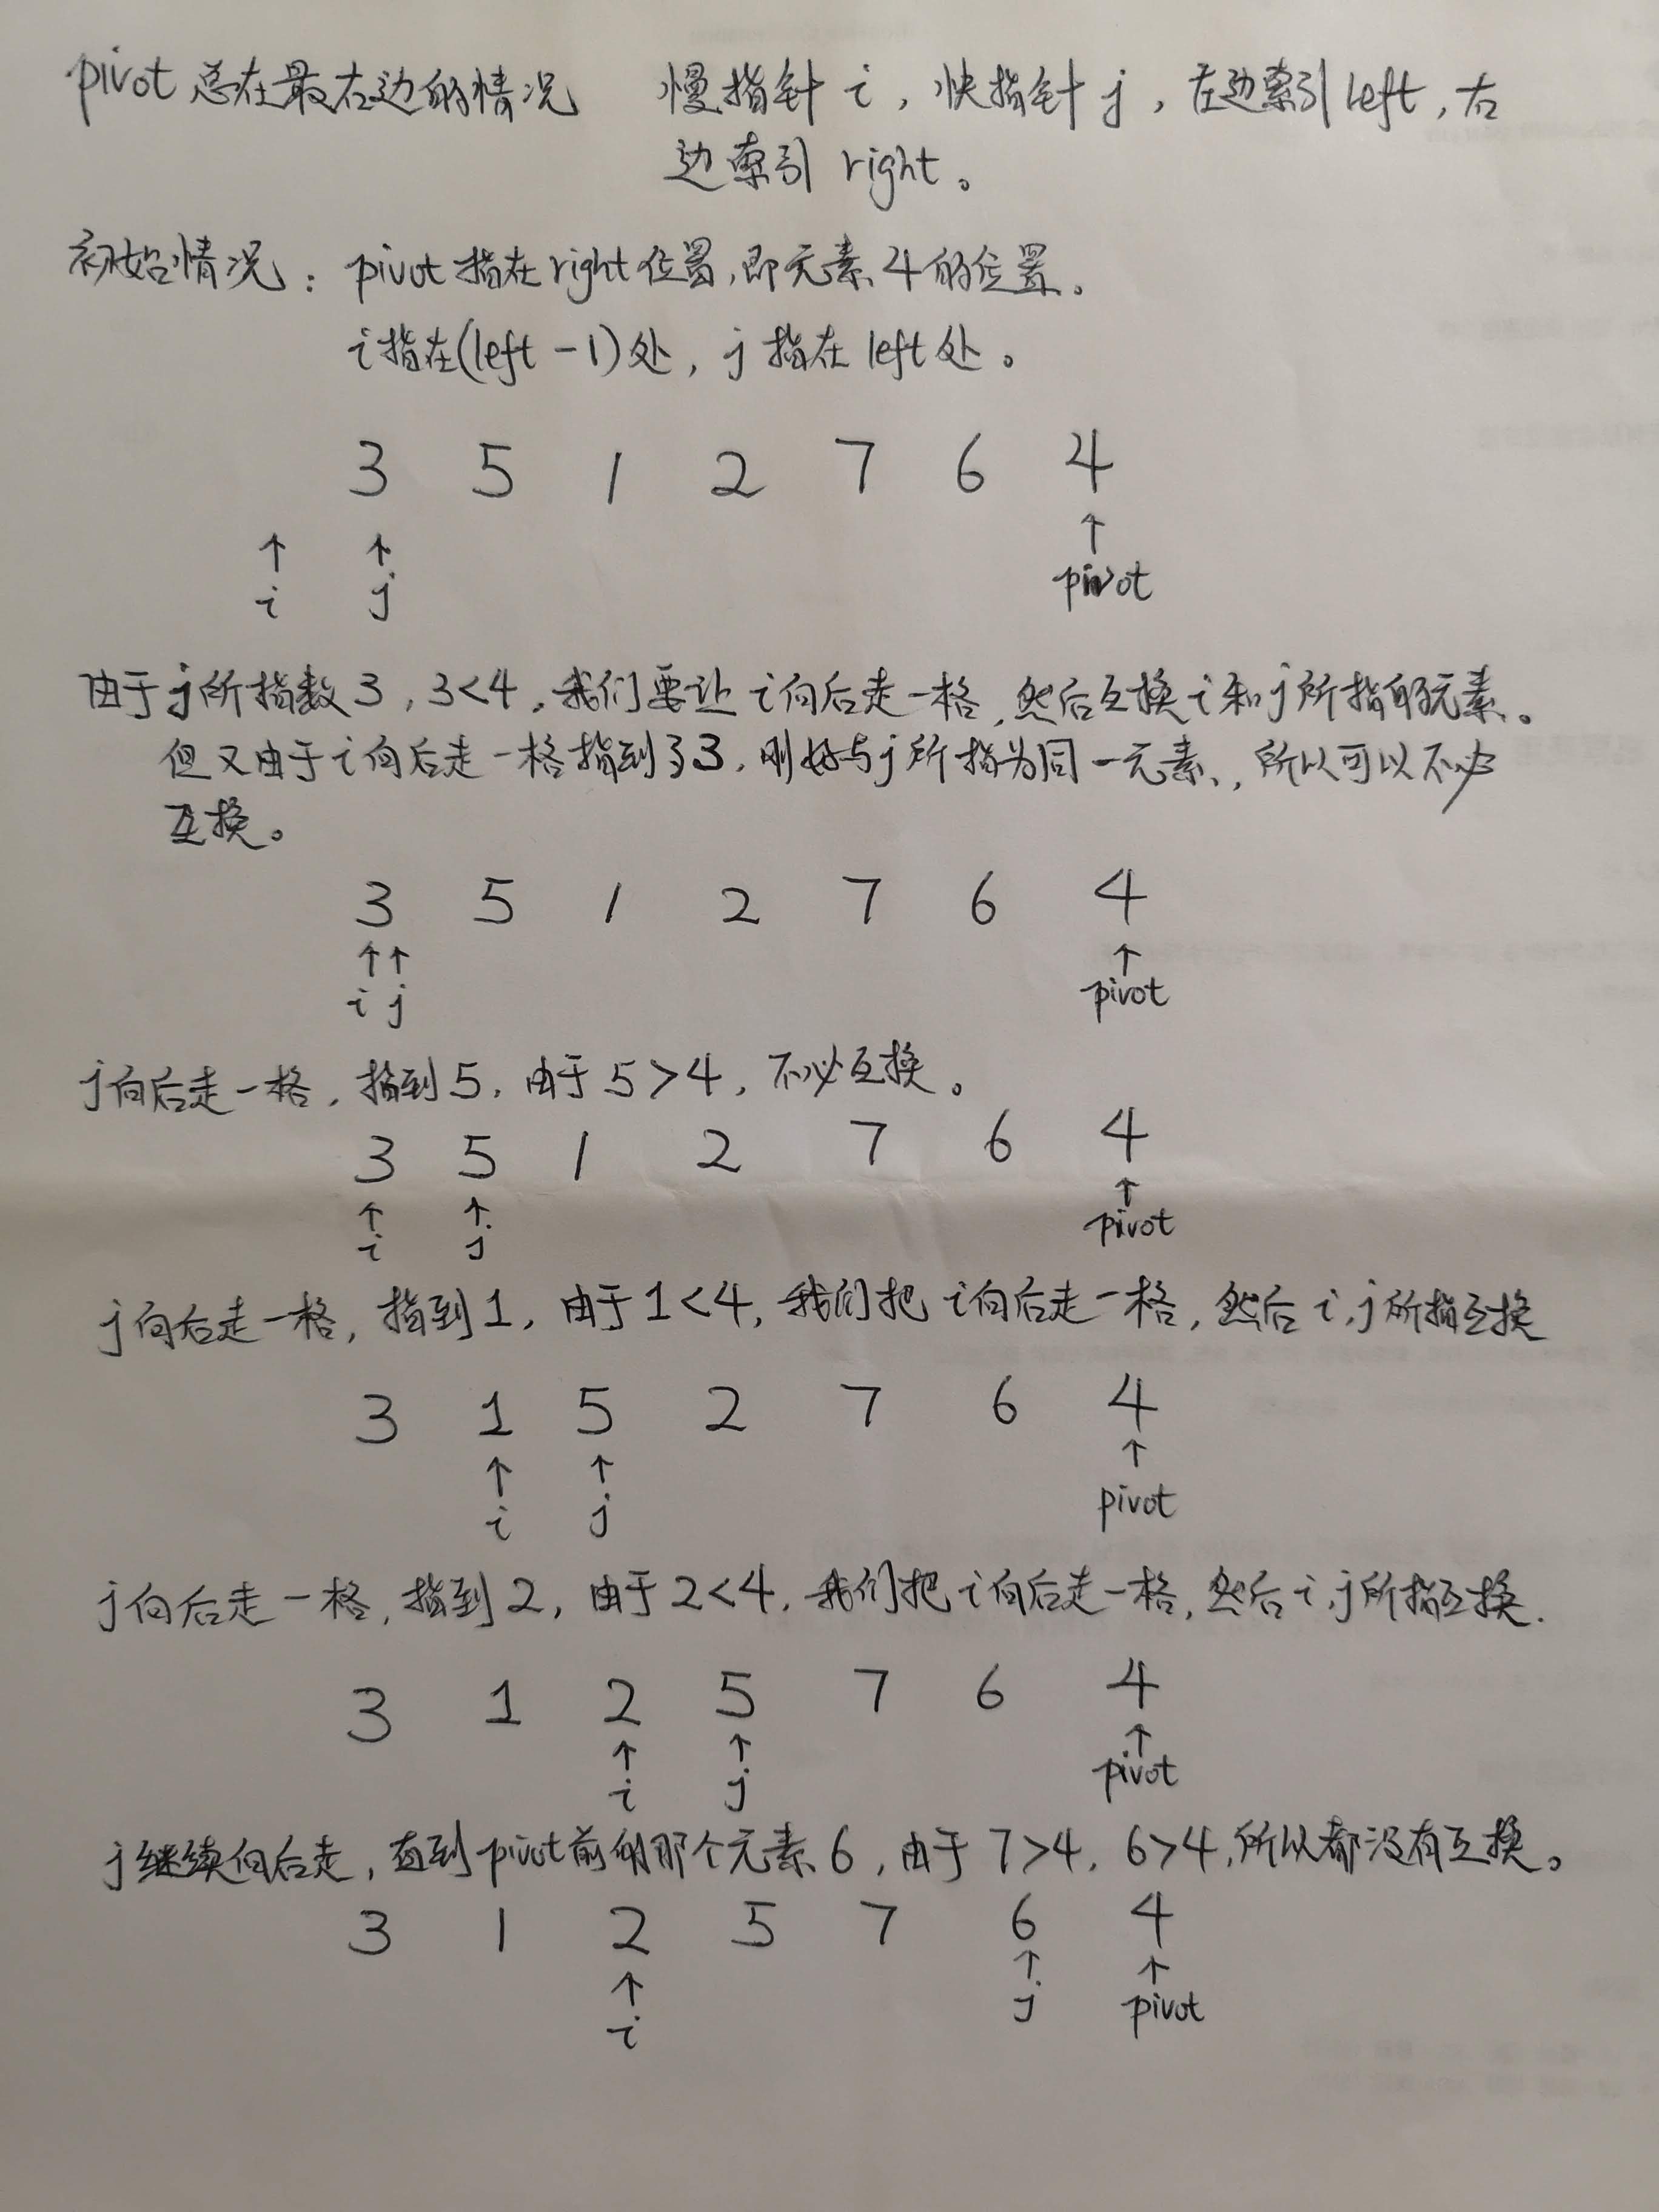 pivot总在最右边的情况 慢指针i，快指针j，左边索引left，右
边索引right。
初始情况：pivot指在right位置，即元素4的位置。
i指在(left-1)处，j指在left处。
3 5 1 2 7 6 4
↑ ↑ ↑
i j pivot
由于j所指数3，3<4，我们要让i向后走一格，然后互换i和j所指的元素。
但又由于i向后走一格指到了3，刚好与j所指为同一元素，所以可以不必
互换。
3 5 1 2 7 6 4
↑↑ ↑
i j pivot
j向后走一格，指到5，由于5>4，不必互换。
3 5 1 2 7 6 4
↑ ↑ ↑
i j pivot
j向后走一格，指到1，由于1<4，我们把i向后走一格，然后i,j所指互换
3 1 5 2 7 6 4
↑ ↑ ↑
i j pivot
j向后走一格，指到2，由于2<4，我们把i向后走一格，然后i,j所指互换.
3 1 2 5 7 6 4
↑ ↑ ↑
i j pivot
j继续向后走，直到pivot前的那个元素6，由于7>4，6>4，所以都没有互换。
3 1 2 5 7 6 4
↑ ↑ ↑
i j pivot